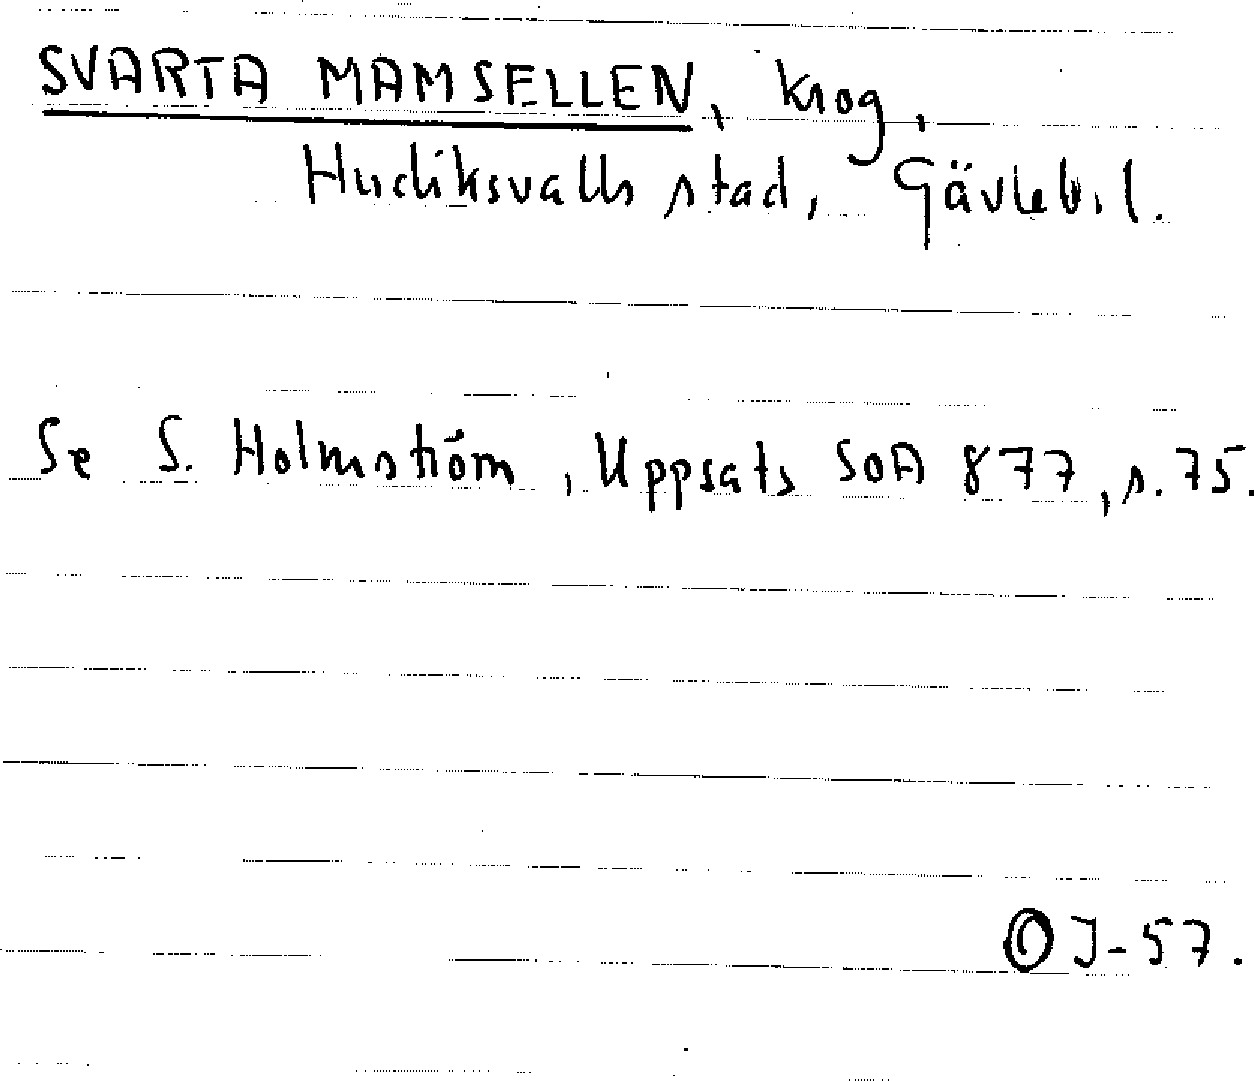 SVARTA MAMSELLEN, krog,
Hudiksvalls stad, Gävleb. l.
Se S. Holmström, Uppsats SOA 877, s. 75.
OJ-57.